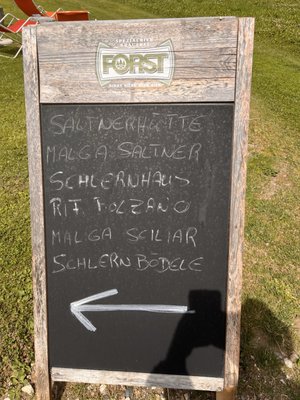 SPEZIALBIER BRAUEREI
FORST
SALTNERHÜTTE
MALGA SALTNER
SCHLERNHAUS
RIF. BOLZANO
MALGA SCILIAR
SCHLERNBÖDELE